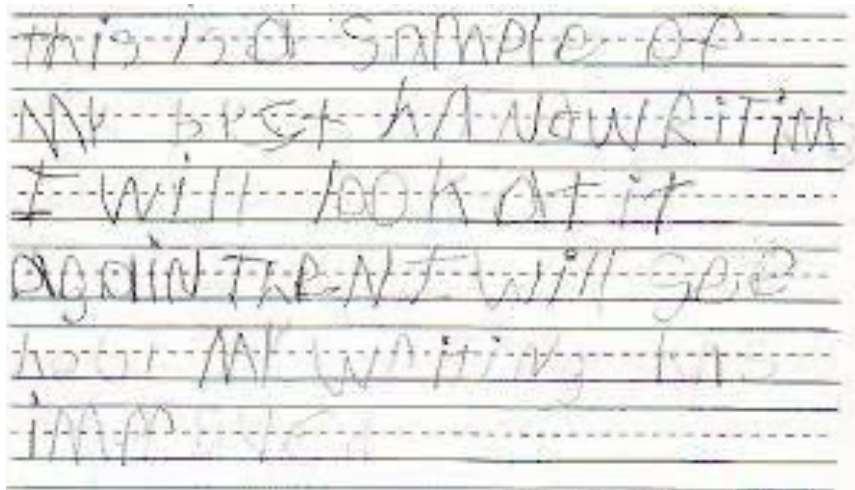 this is a sample of
My best hANdwRiTing
I will look at it
again TheN I will see
how My writing has